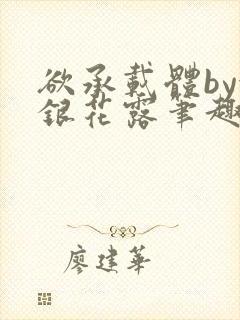 欲承載體by
銀花露筆趣
廖建華